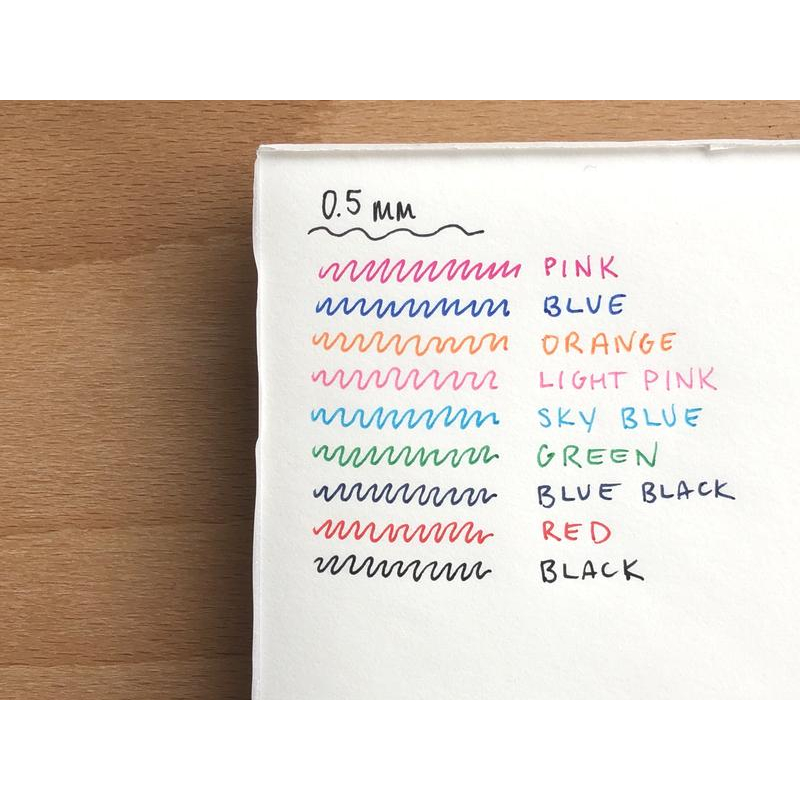 0.5 mm
PINK
BLUE
ORANGE
LIGHT PINK
SKY BLUE
GREEN
BLUE BLACK
RED
BLACK